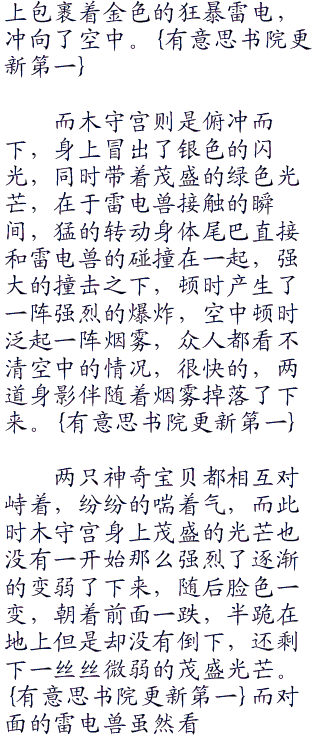 上包裹着金色的狂暴雷电，
冲向了空中。{有意思书院更
新第一}
而木守宫则是俯冲而
下，身上冒出了银色的闪
光，同时带着茂盛的绿色光
芒，在于雷电兽接触的瞬
间，猛的转动身体尾巴直接
和雷电兽的碰撞在一起，强
大的撞击之下，顿时产生了
一阵强烈的爆炸，空中顿时
泛起一阵烟雾，众人都看不
清空中的情况，很快的，两
道身影伴随着烟雾掉落了下
来。{有意思书院更新第一}
两只神奇宝贝都相互对
峙着，纷纷的喘着气，而此
时木守宫身上茂盛的光芒也
没有一开始那么强烈了逐渐
的变弱了下来，随后脸色一
变，朝着前面一跌，半跪在
地上但是却没有倒下，还剩
下一丝丝微弱的茂盛光芒。
{有意思书院更新第一}而对
面的雷电兽虽然看